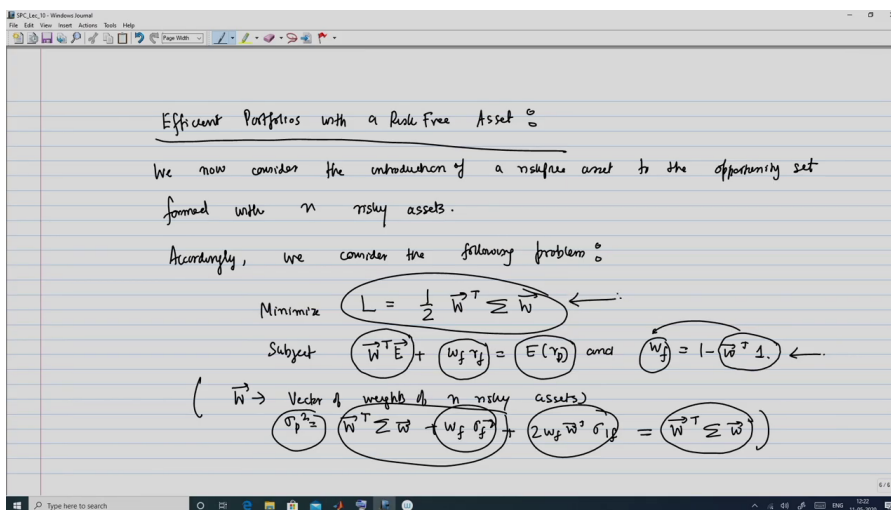 SPC_Lec_10 - Windows Journal
File Edit View Insert Actions Tools Help
Page Width
Efficient Portfolios with a Risk Free Asset :
We now consider the introduction of a riskfree asset to the opportunity set
formed with n risky assets.
Accordingly, we consider the following problem :
Minimize L = 1/2 w⃗^T Σ w⃗ ←
Subject w⃗^T E⃗ + w_f r_f = E(r_p) and w_f = 1 - w⃗^T 1. ←
( w⃗ → Vector of weights of n risky assets)
σ_p^2 = w⃗^T Σ w⃗ + w_f σ_f^2 + 2 w_f w⃗^T σ_1f = w⃗^T Σ w⃗ )
6/6
Type here to search
ENG
12:22
11-05-2020